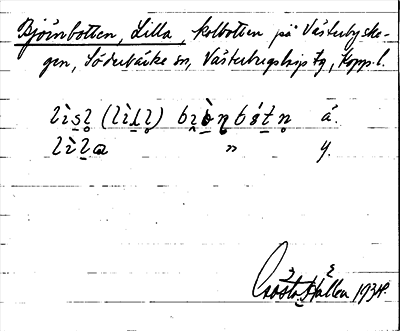 Björnbotten, Lilla, kolbotten på Västerbysko-
gen, Söderbärke sn, Västerbergslags tg, Kopp. l.
lìsl (lìll) bìo̤nbótn á.
lìla " y.
Gösta Hallen 1934.